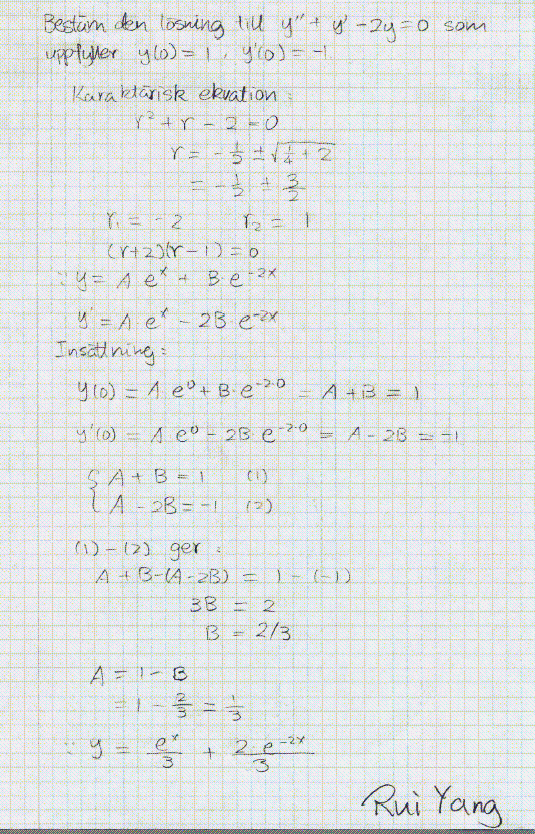 Bestäm den lösning till y'' + y' - 2y = 0 som
uppfyller y(0) = 1, y'(0) = -1.
Karaktärisk ekvation:
r² + r - 2 = 0
r = -1/2 ± √(1/4 + 2)
= -1/2 ± 3/2
r₁ = -2 r₂ = 1
(r+2)(r-1) = 0
∵ y = A e^x + B·e^-2x
y' = A·e^x - 2B·e^-2x
Insättning:
y(0) = A·e^0 + B·e^-2·0 = A + B = 1
y'(0) = A e^0 - 2B·e^-2·0 = A - 2B = -1
{ A + B = 1 (1)
A - 2B = -1 (2)
(1) - (2) ger:
A + B-(A-2B) = 1 - (-1)
3B = 2
B = 2/3
A = 1 - B
= 1 - 2/3 = 1/3
∵ y = e^x/3 + 2·e^-2x/3
Rui Yang